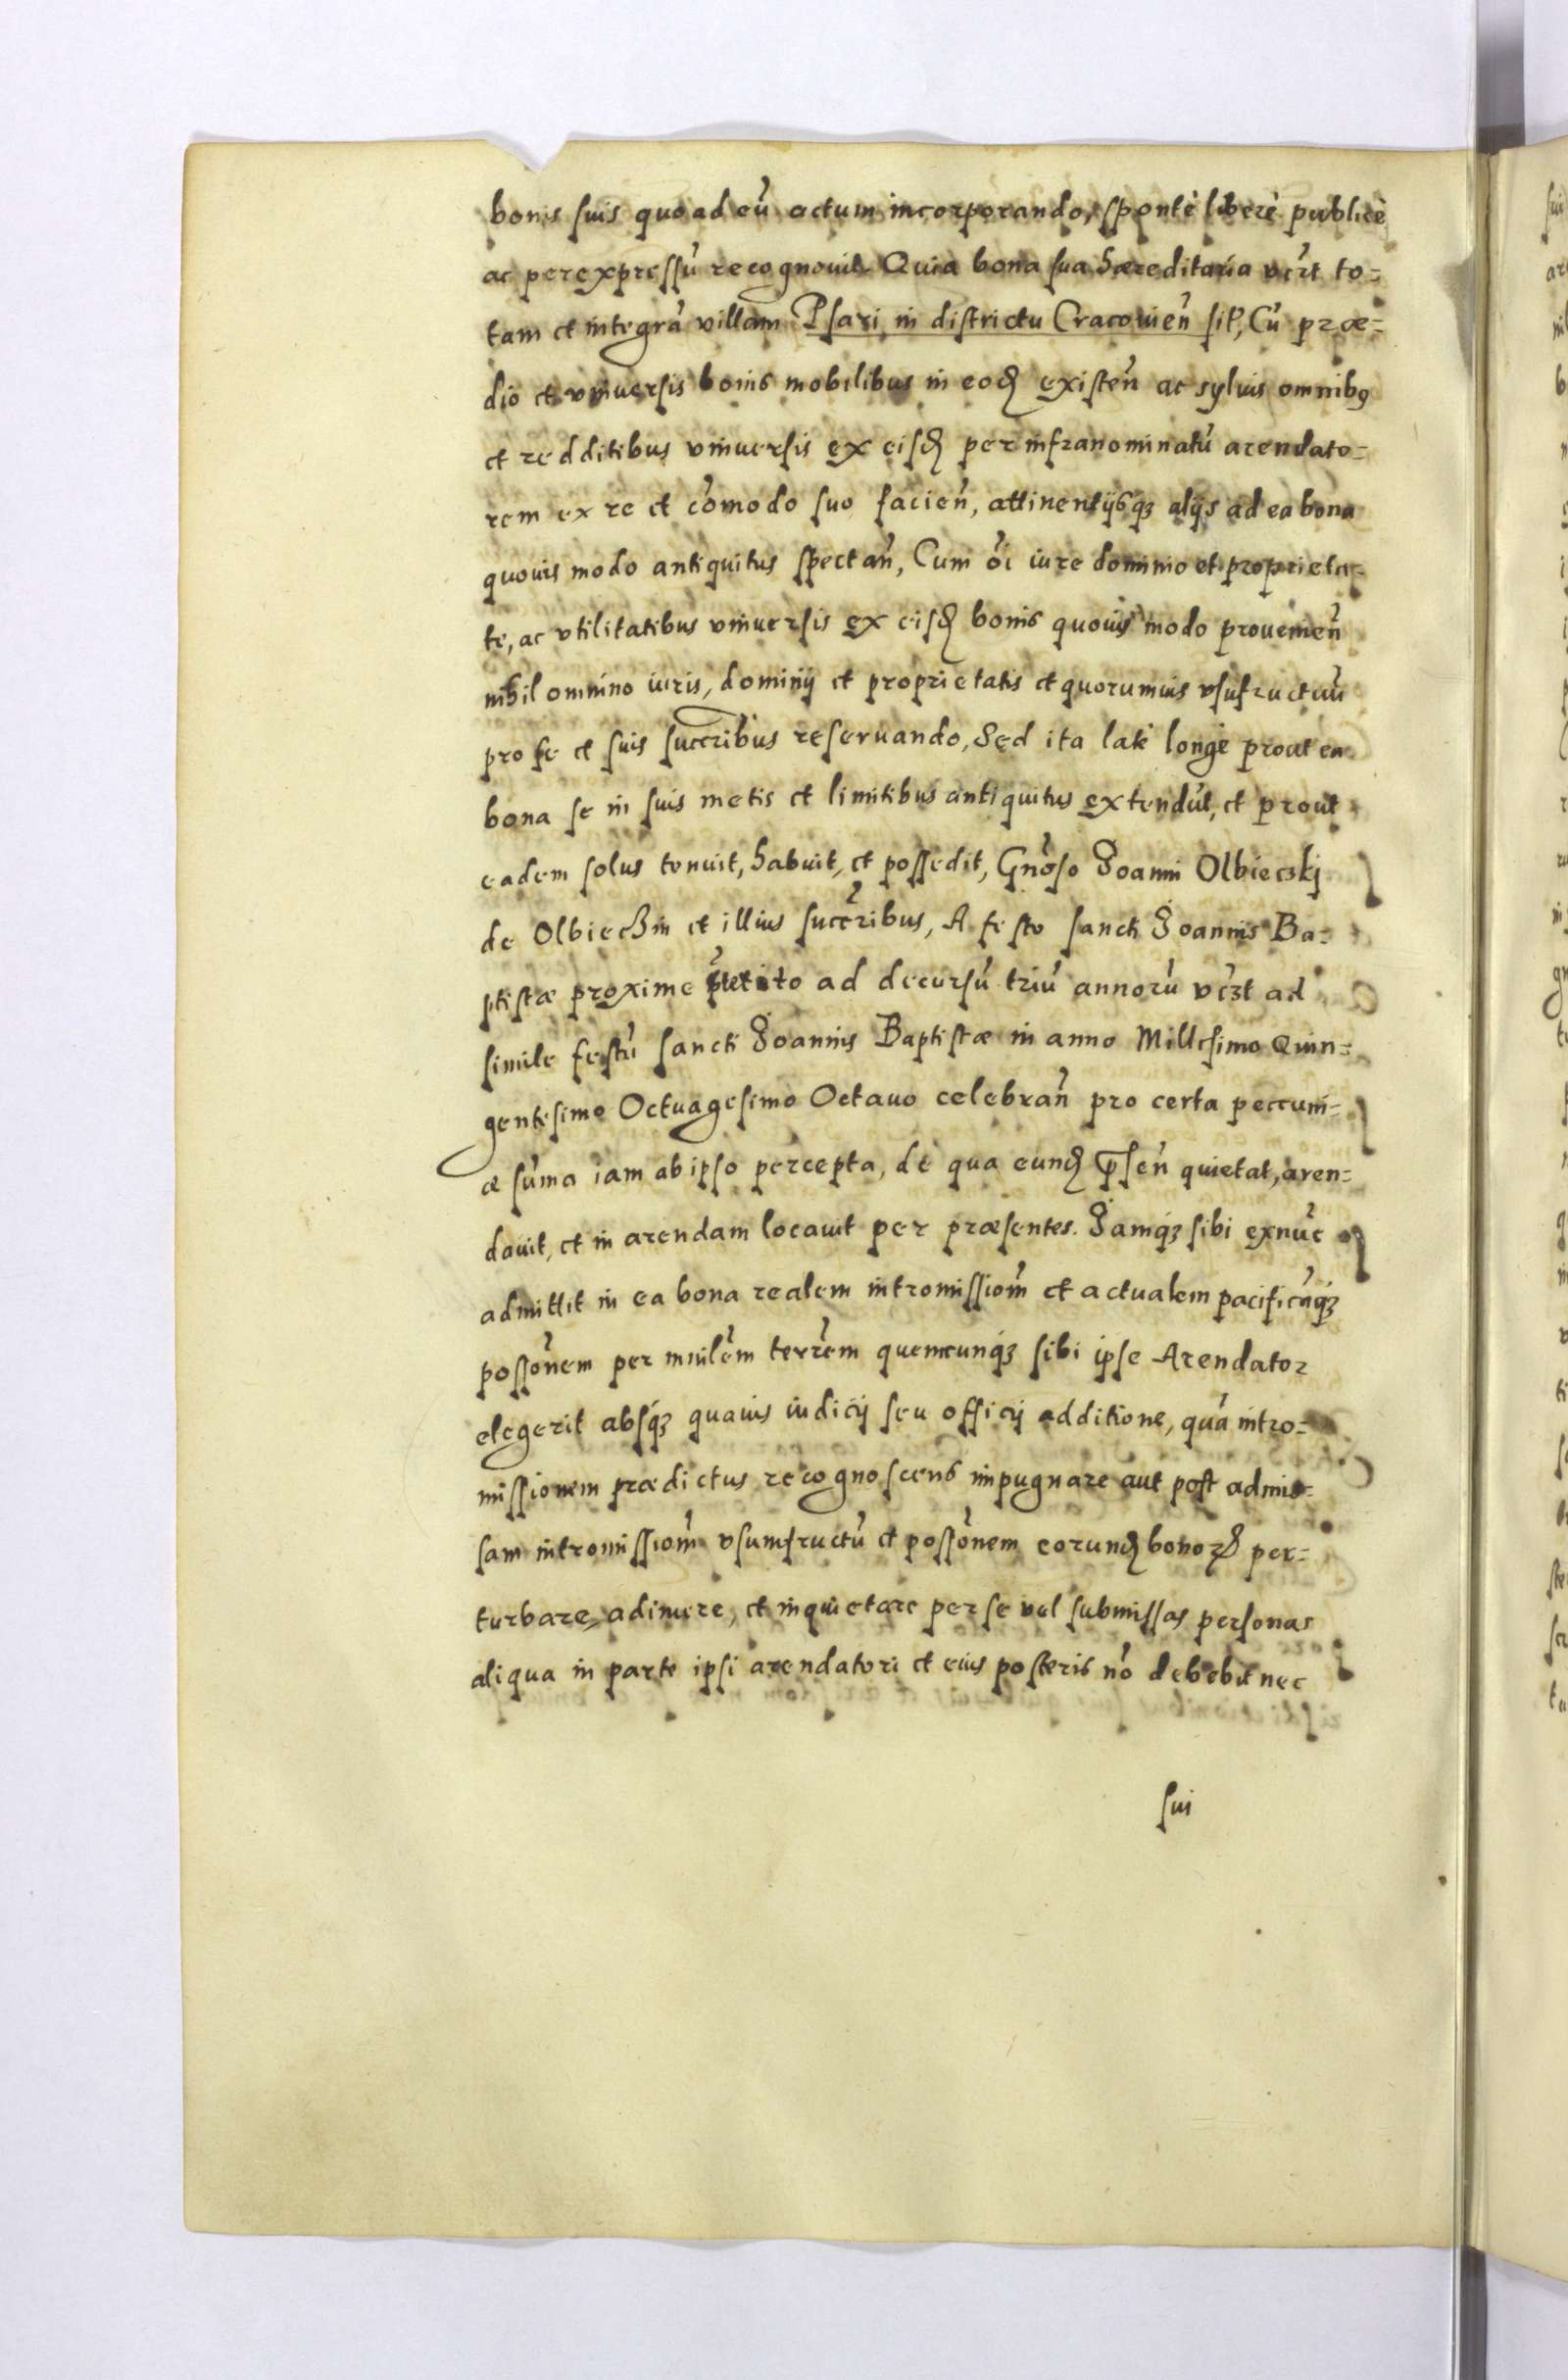 bonis suis quoad eũ actum incorporando, spontè liberè publicè
ac per expressũ recognouit Quia bona sua hæreditaria vczt to=
tam et integrã villam Psari in districtu Cracouieñ sit, Cũ præ=
dio et vniuersis bonis mobilibus in eodꝫ existeñ ac syluis omnibꝰ
et redditibus vniuersis ex eisdꝫ per infranominatũ arendato=
rem ex re et cõmodo suo facieñ, attinentijsqꝫ alijs ad ea bona
quouis modo antiquitus spectañ, Cum õi iure dominio et proprieta=
te, ac vtilitatibus vniuersis ex eisdꝫ bonis quouis modo prouenieñ
nihil omnino iuris, dominij et proprietatis et quorumuis vsufructuũ
pro se et suis succr̃ibus reseruando, Sed ita latè longè prout ea
bona se in suis metis et limitibus antiquitus extendũt, et prout
eadem solus tenuit, habuit, et possedit, Gñoso Joanni Olbieczkj
de Olbieczin et illius succr̃ibus, A festo sancti Joannis Ba=
ptistæ proxime p̃terito ad decursũ triũ annorũ vczt ad
simile festũ sancti Joannis Baptistæ in anno Millesimo Quin=
gentesimo Octuagesimo Octauo celebrañ pro certa peccuni=
æ sũma iam ab ipso percepta, de qua eundꝫ p̃señ quietat, aren=
dauit, et in arendam locauit per præsentes. Jamqꝫ sibi exnũc
admittit in ea bona realem intromissiõm et actualem pacificãqꝫ
possõnem per minlẽm terrẽm quemcunqꝫ sibi ipse Arendator
elegerit absqꝫ quauis iudicij seu officij additione, quã intro=
missionem prædictus recognoscens impugnare aut post admis=
sam intromissiõm vsumfructũ et possõnem eorundꝫ bonoꝝ per=
turbare, adimere, et inquietare per se vel submissas personas
aliqua in parte ipsi arendatori et eius posteris nõ debebit nec
sui